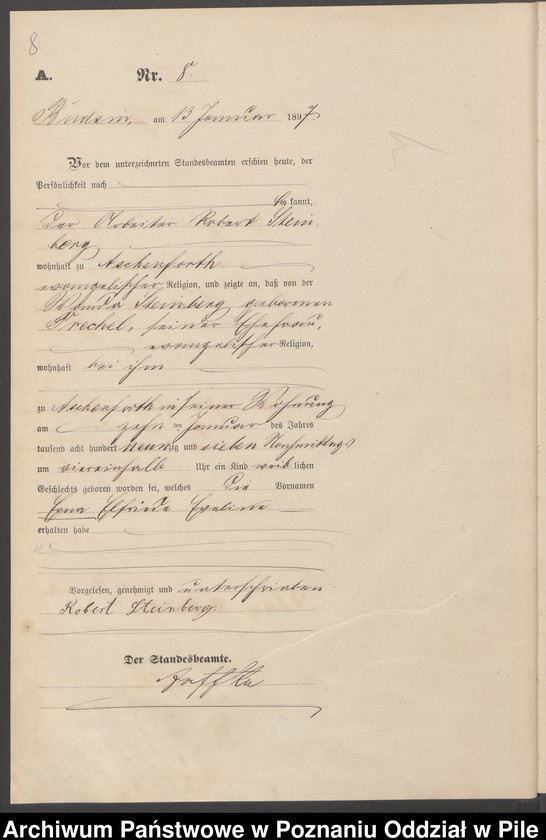 8
A. Nr. 8.
Budsin, am 13 Januar 1897.
Vor dem unterzeichneten Standesbeamten erschien heute, der
Persönlichkeit nach
bekannt,
der Arbeiter Robert Stein
berg
wohnhaft zu Aschenforth
evangelischer Religion, und zeigte an, daß von der
Wanda Steinberg geborenen
Trechel, seiner Ehefrau,
evangelischer Religion,
wohnhaft bei ihm
zu Aschenforth in seiner Wohnung
am zehnten Januar des Jahres
tausend acht hundert neunzig und sieben Nachmittags
um viereinhalb Uhr ein Kind weiblichen
Geschlechts geboren worden sei, welches die Vornamen
Erna Elfriede Eveline
erhalten habe
Vorgelesen, genehmigt und unterschrieben
Robert Steinberg.
Der Standesbeamte.
Archiwum Państwowe w Poznaniu Oddział w Pile